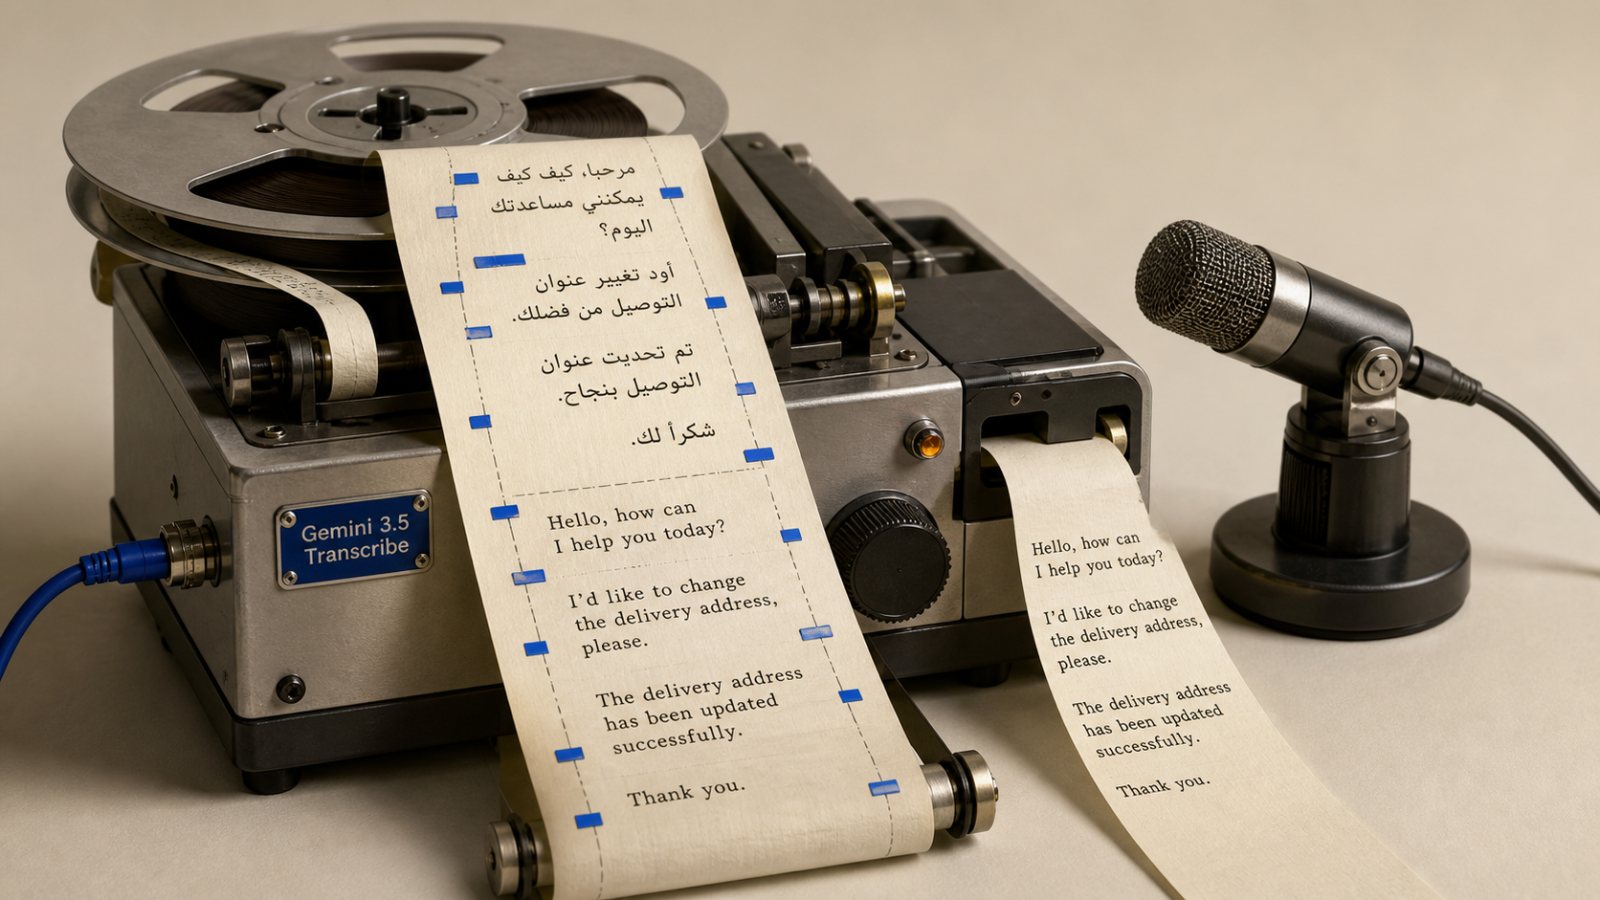 مرحبا، كيف كيف
يمكنني مساعدتك
اليوم؟
أود تغيير عنوان
التوصيل من فضلك.
تم تحديت عنوان
التوصيل بنجاح.
شكرأ لك.
Hello, how can
I help you today?
I'd like to change
the delivery address,
please.
The delivery address
has been updated
successfully.
Thank you.
Gemini 3.5
Transcribe
Hello, how can
I help you today?
I'd like to change
the delivery address,
please.
The delivery address
has been updated
successfully.
Thank you.